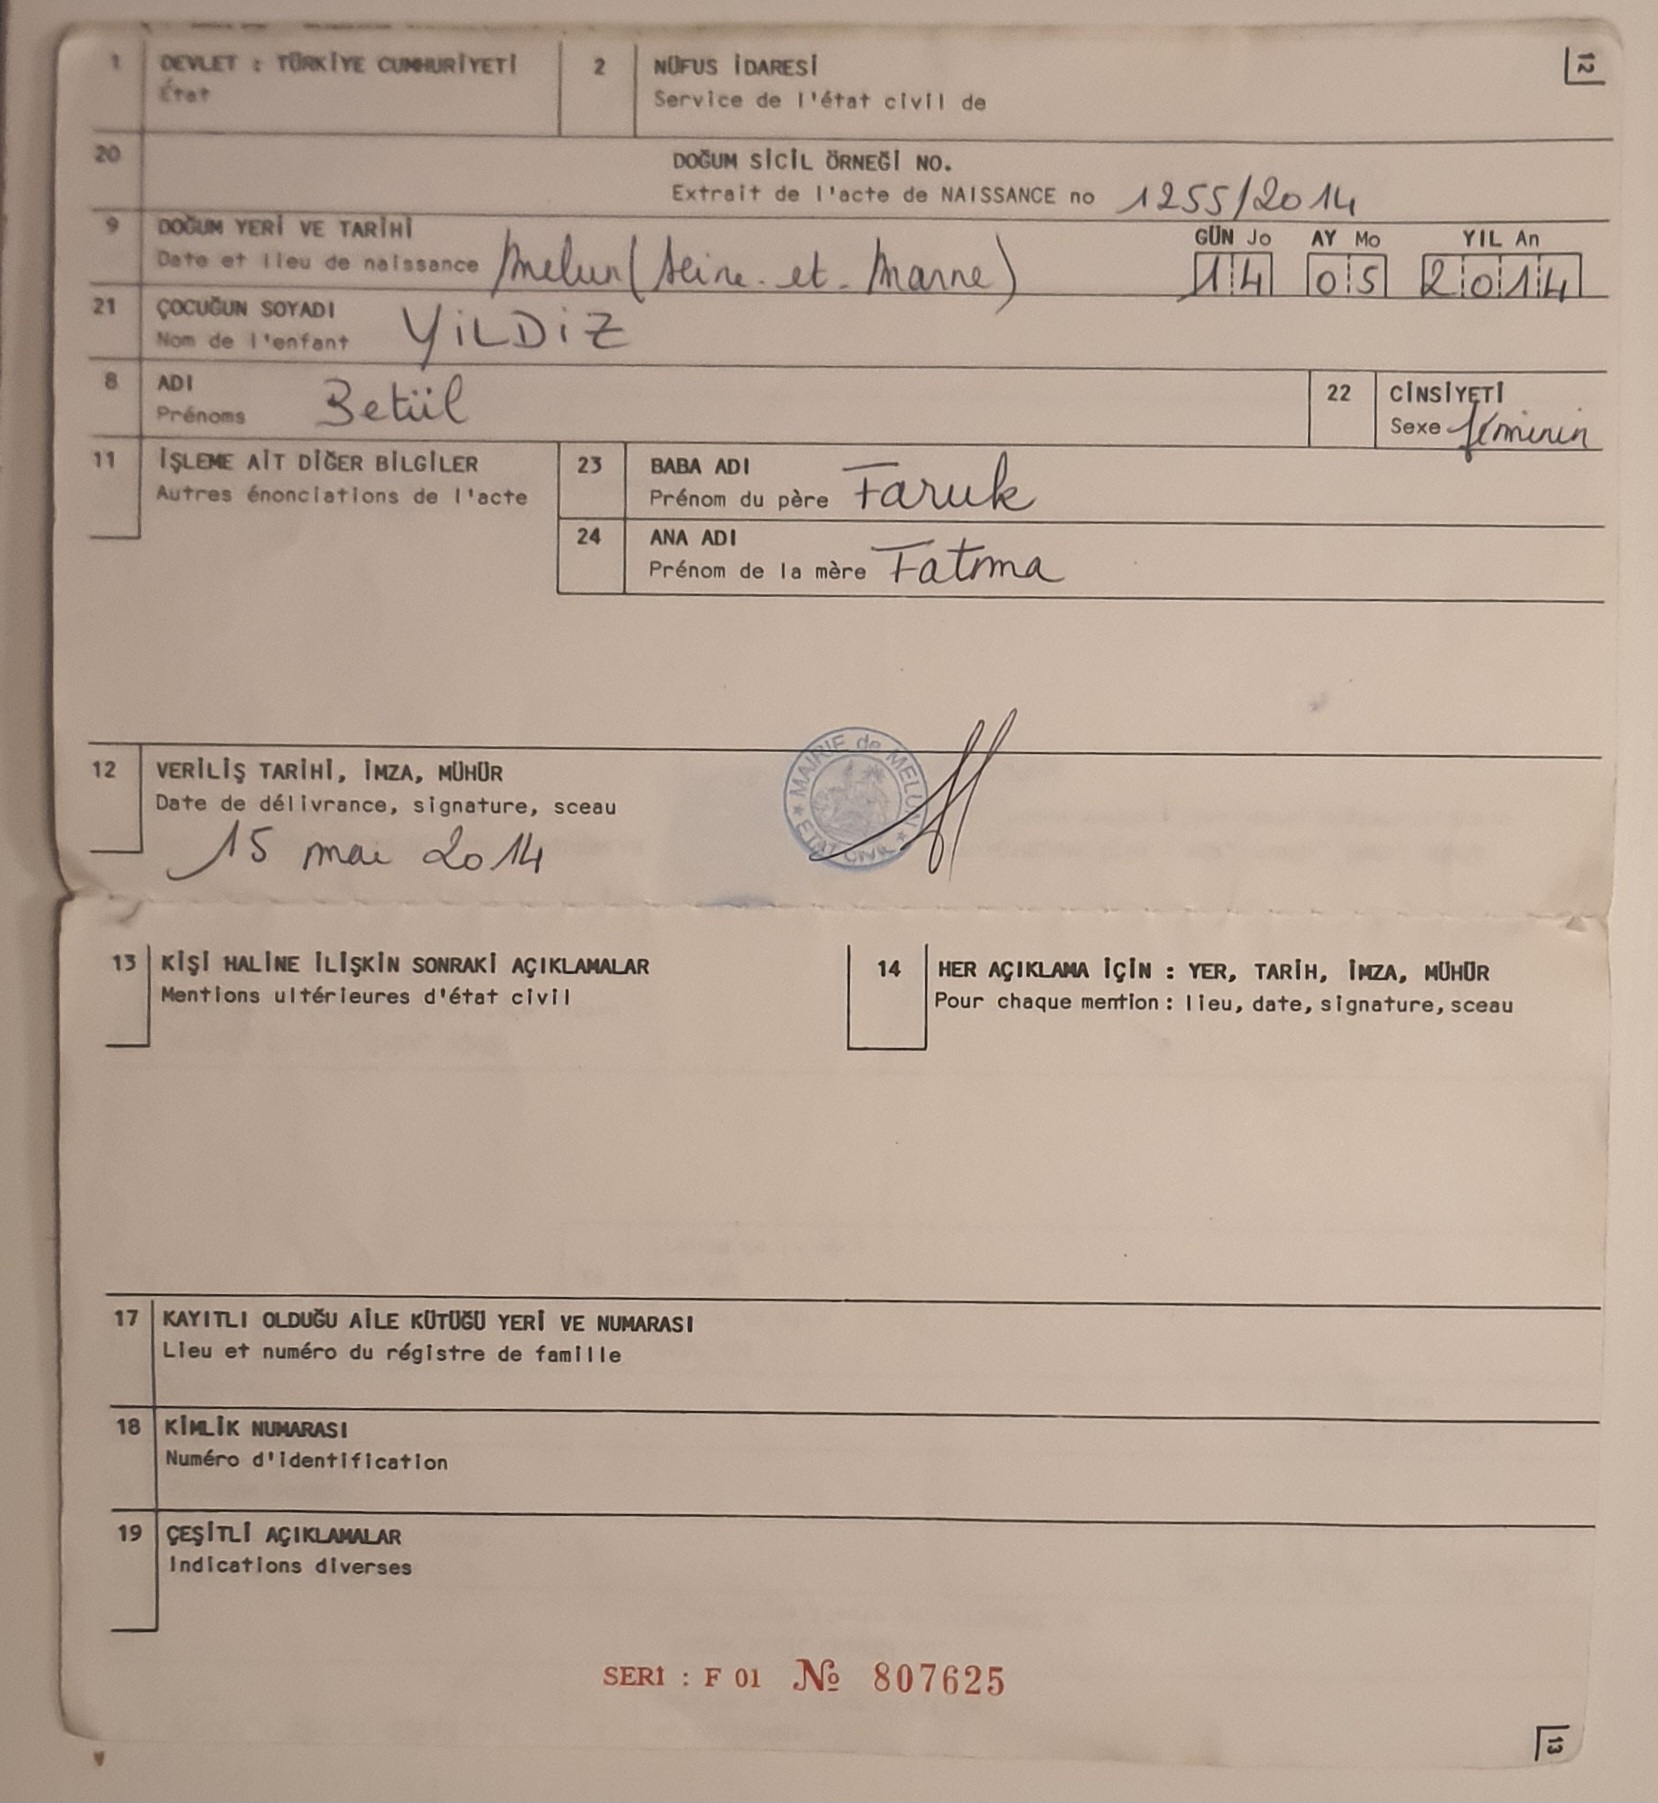 1 DEVLET : TÜRKİYE CUMHURİYETİ
État
2 NÜFUS İDARESİ
Service de l'état civil de
12
20 DOĞUM SİCİL ÖRNEĞİ NO.
Extrait de l'acte de NAISSANCE no 1255/2014
9 DOĞUM YERİ VE TARİHİ
Date et lieu de naissance Melun (Seine-et-Marne)
GÜN Jo AY Mo YIL An
14 05 2014
21 ÇOCUĞUN SOYADI
Nom de l'enfant YiLDiZ
8 ADI
Prénoms Betül
22 CİNSİYETİ
Sexe féminin
11 İŞLEME AİT DİĞER BİLGİLER
Autres énonciations de l'acte
23 BABA ADI
Prénom du père Faruk
24 ANA ADI
Prénom de la mère Fatma
12 VERİLİŞ TARİHİ, İMZA, MÜHÜR
Date de délivrance, signature, sceau
15 mai 2014
MAIRIE de MELUN
ETAT CIVIL
13 KİŞİ HALİNE İLİŞKİN SONRAKİ AÇIKLAMALAR
Mentions ultérieures d'état civil
14 HER AÇIKLAMA İÇİN : YER, TARİH, İMZA, MÜHÜR
Pour chaque mention : lieu, date, signature, sceau
17 KAYITLI OLDUĞU AİLE KÜTÜĞÜ YERİ VE NUMARASI
Lieu et numéro du régistre de famille
18 KİMLİK NUMARASI
Numéro d'identification
19 ÇEŞİTLİ AÇIKLAMALAR
Indications diverses
SERİ : F 01 № 807625
13